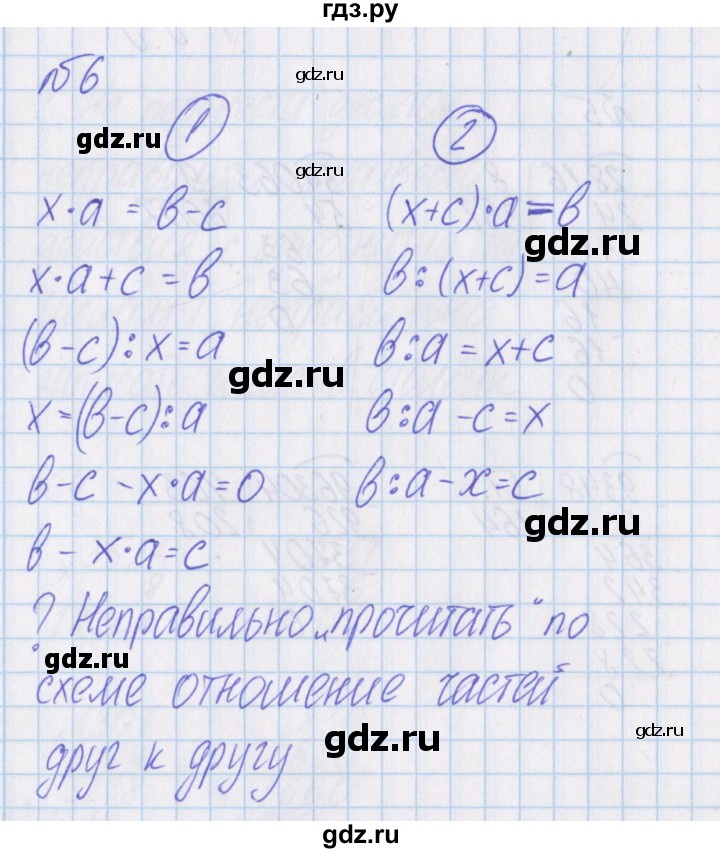 гдз.ру
№6
gdz.ru
gdz.ru
① ②
gdz.ru
x·a = в-с
(x+c)·a=в
gdz.ru
x·a+c = в
в:(x+c)=a
(в-с):x=a
в:a = x+c
gdz.ru
x=(в-с):a
в:a -c=x
в-с -x·a=0
в:a-x=c
gdz.ru
в- x·a=c
? Неправильно „прочитать" по
gdz.ru
схеме отношение частей
друг к другу
gdz.ru
gdz.ru
gdz.ru